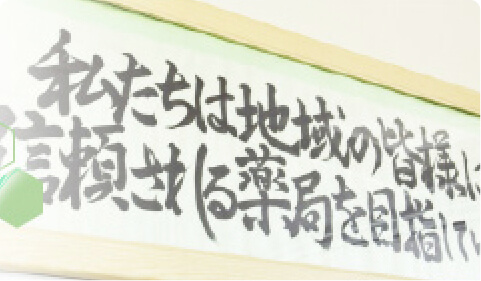 私たちは地域の皆様に
信頼される薬局を目指してい